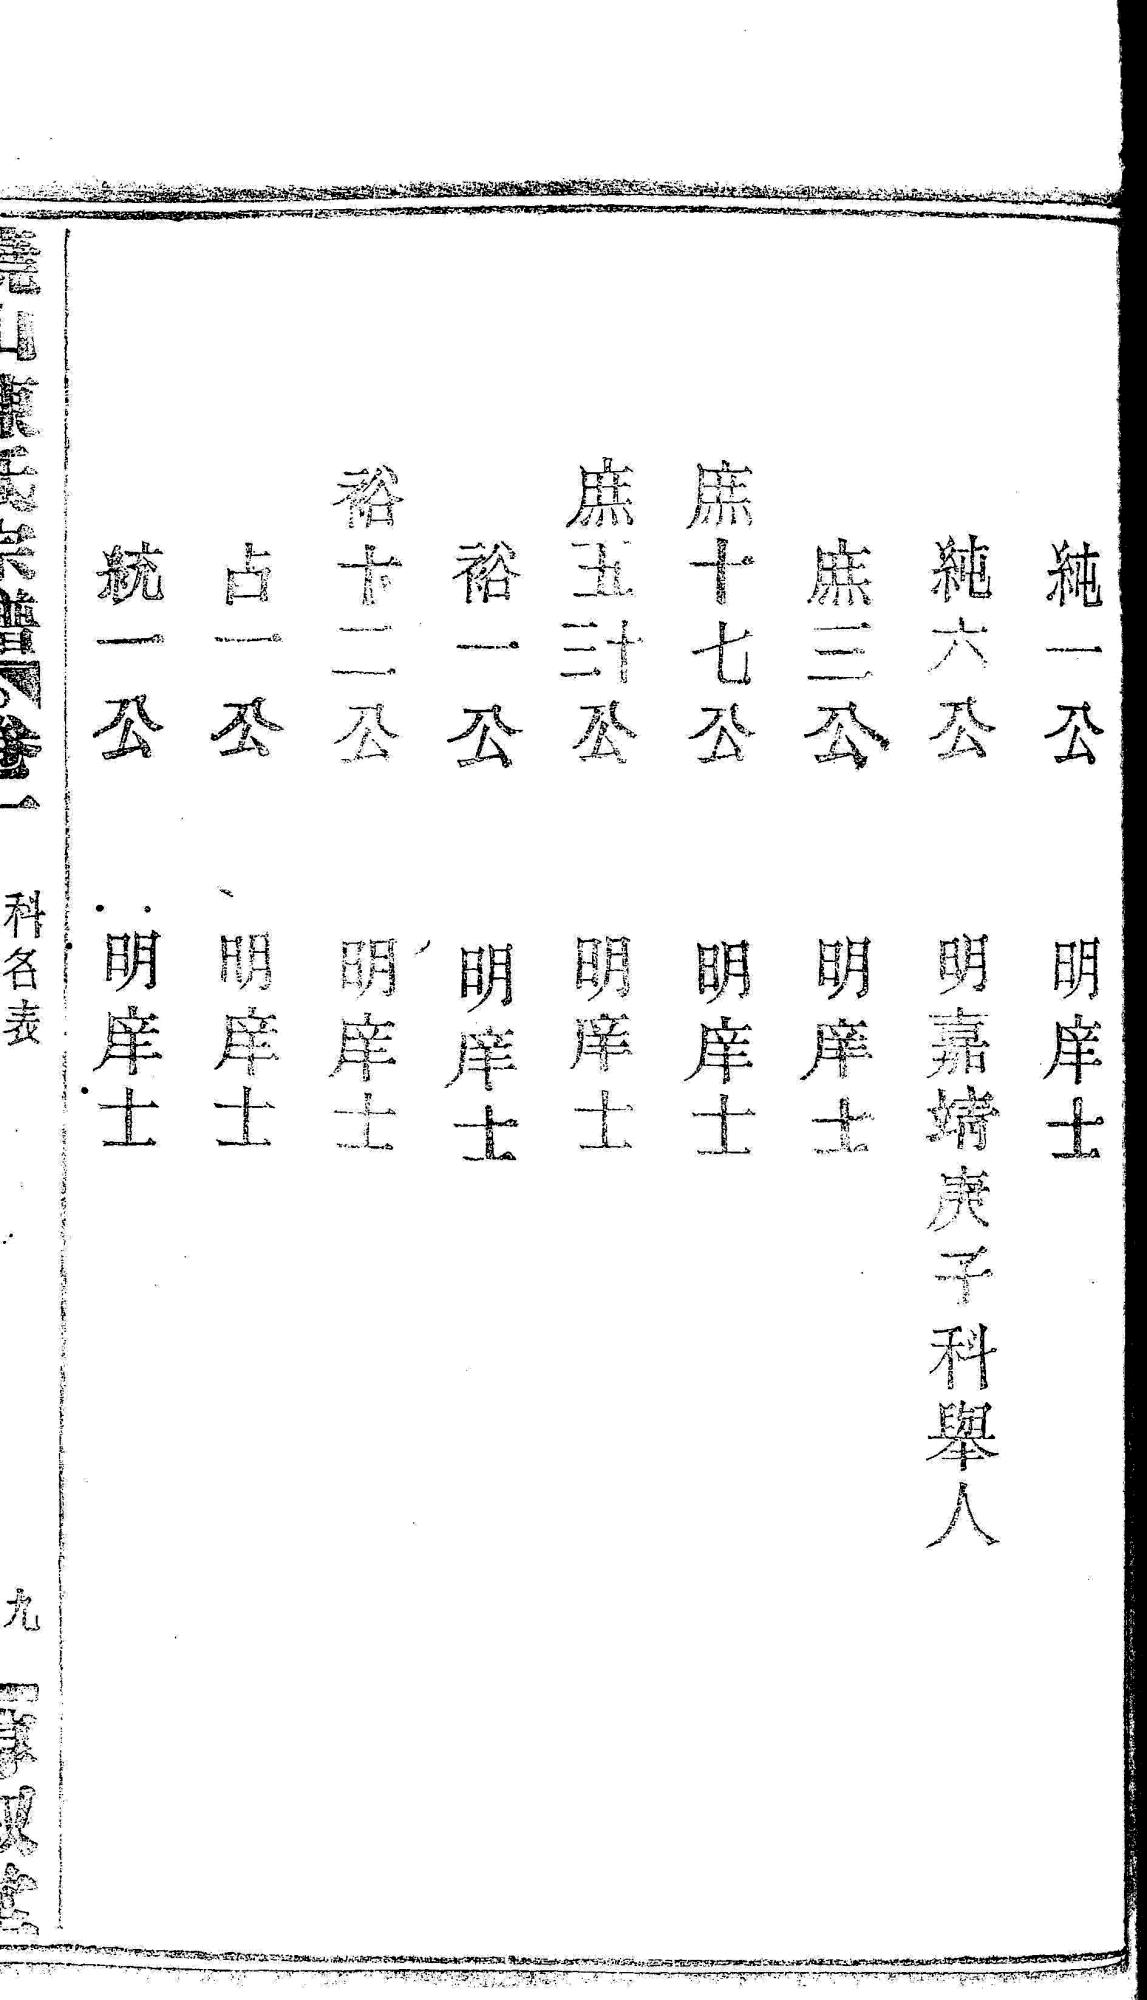 純一公 明庠士
純六公 明嘉靖庚子科舉人
庶三公 明庠士
庶十七公 明庠士
庶五十三公 明庠士
裕一公 明庠士
裕十二公 明庠士
占一公 明庠士
統一公 明庠士
山陳氏宗譜 卷一 科名表 九